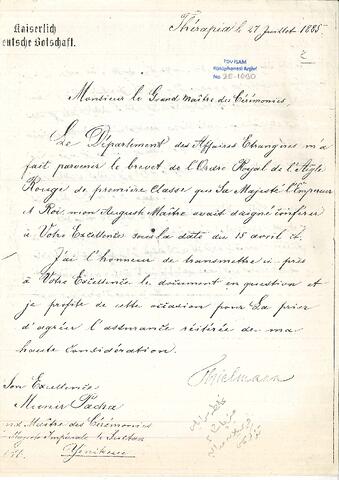 Kaiserlich
eutsche Botschaft.
Thérapia le 27 Juillet 1885
TDV ISAM
Kütüphanesi Arşivi
No 2E-1090
2
Monsieur le Grand Maître des Cérémonies,
Le Département des Affaires Etrangères m'a
fait parvenir le brevet de l'Ordre Royal de l'Aigle
Rouge de première classe que Sa Majesté l'Empereur
et Roi, mon Auguste Maître avait daigné conférer
à Votre Excellence sous la date du 15 avril
J'ai l'honneur de transmettre ci près
à Votre Excellence le document en question et
je profite de cette occasion pour La prier
d'agréer l'assurance réitérée de ma
haute considération.
Thielmann
Son Excellence
Munir Pacha
nd Maître des Cérémonies
Majesté Impériale le Sultan
Yenikeui